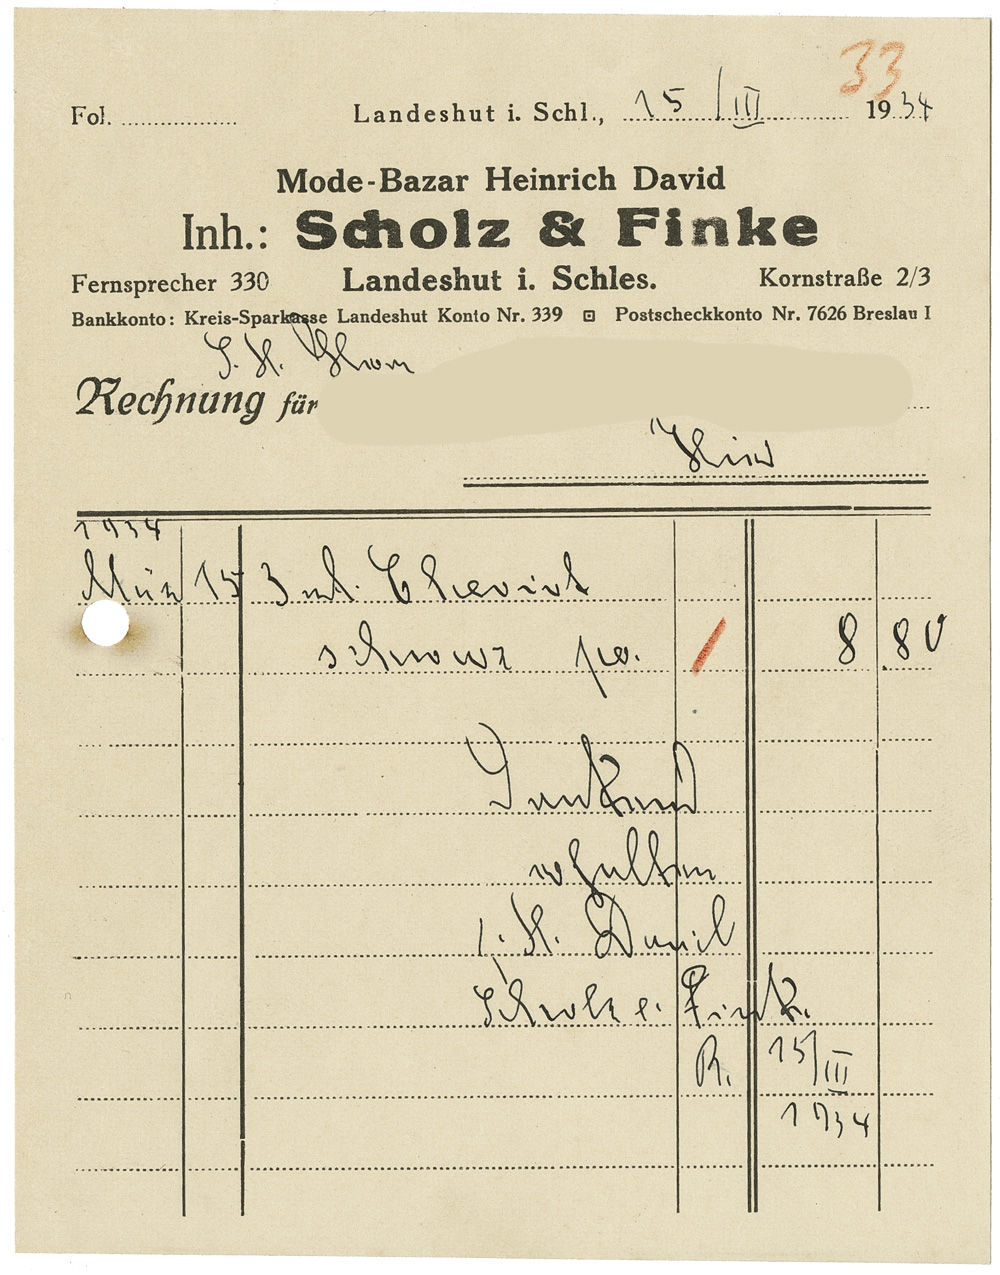 33
Fol. Landeshut i. Schl., 15/III 1934
Mode-Bazar Heinrich David
Inh.: Scholz & Finke
Fernsprecher 330 Landeshut i. Schles. Kornstraße 2/3
Bankkonto: Kreis-Sparkasse Landeshut Konto Nr. 339 Postscheckkonto Nr. 7626 Breslau I
Rechnung für
Hier
1934
März 15 3 mt. Cheviot
schwarz 8 80
Dankend
erhalten
H. David
Scholz & Finke
R. 15/III
1934